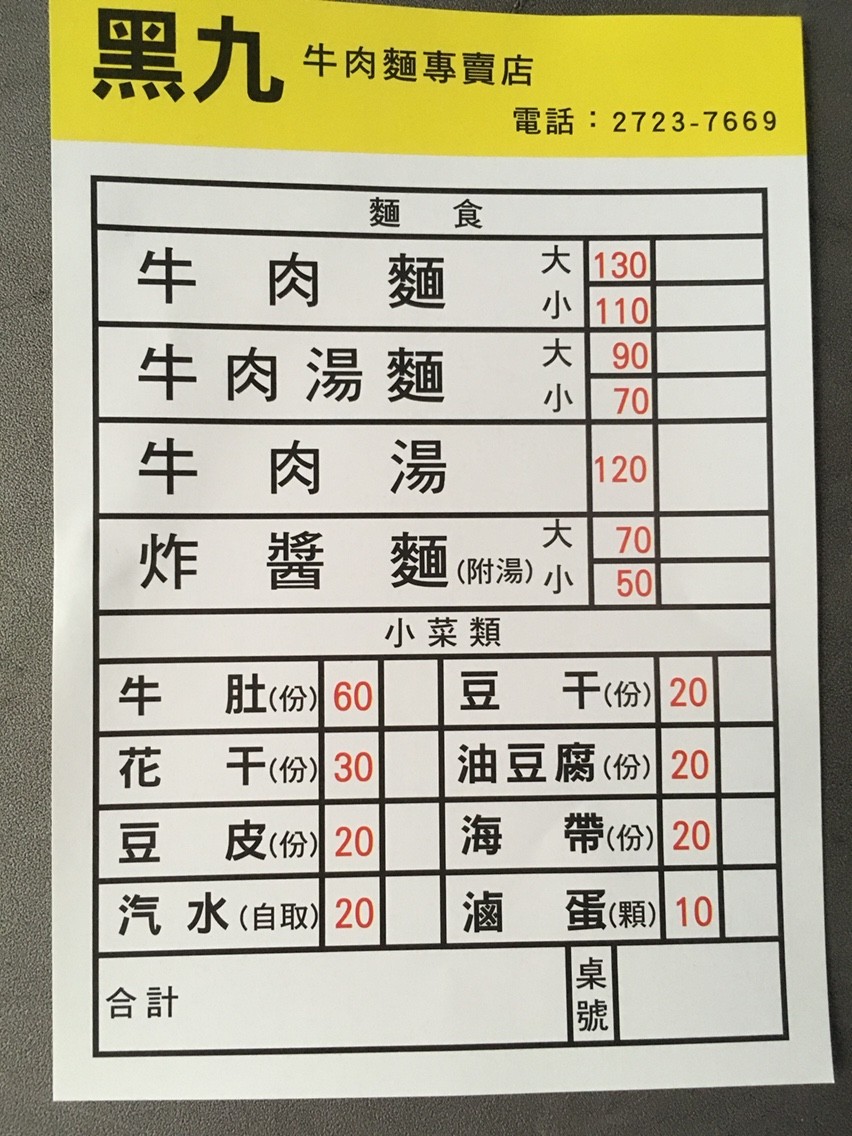 黑九 牛肉麵專賣店
電話：2723-7669
麵 食
牛肉麵 大 130
小 110
牛肉湯麵 大 90
小 70
牛肉湯 120
炸醬麵(附湯) 大 70
小 50
小菜類
牛肚(份) 60 豆干(份) 20
花干(份) 30 油豆腐(份) 20
豆皮(份) 20 海帶(份) 20
汽水(自取) 20 滷蛋(顆) 10
合計 桌號